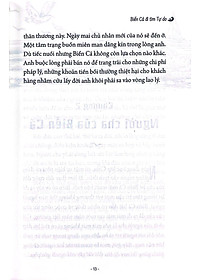 Biển Cả đi tìm Tự do
thân thương này. Ngày mai chủ nhân mới của nó sẽ đến ở.
Một tâm trạng buồn miên man dâng kín trong lòng anh.
Dù tiếc nuối nhưng Biển Cả không còn lựa chọn nào khác.
Anh buộc lòng phải bán nó để trang trải cho những chi phí
pháp lý, những khoản tiền bồi thường thiệt hại cho khách
hàng nhằm cứu lấy đời anh khỏi phải sa vào vòng lao lý.
Người cha của Biển Cả
- 13 -